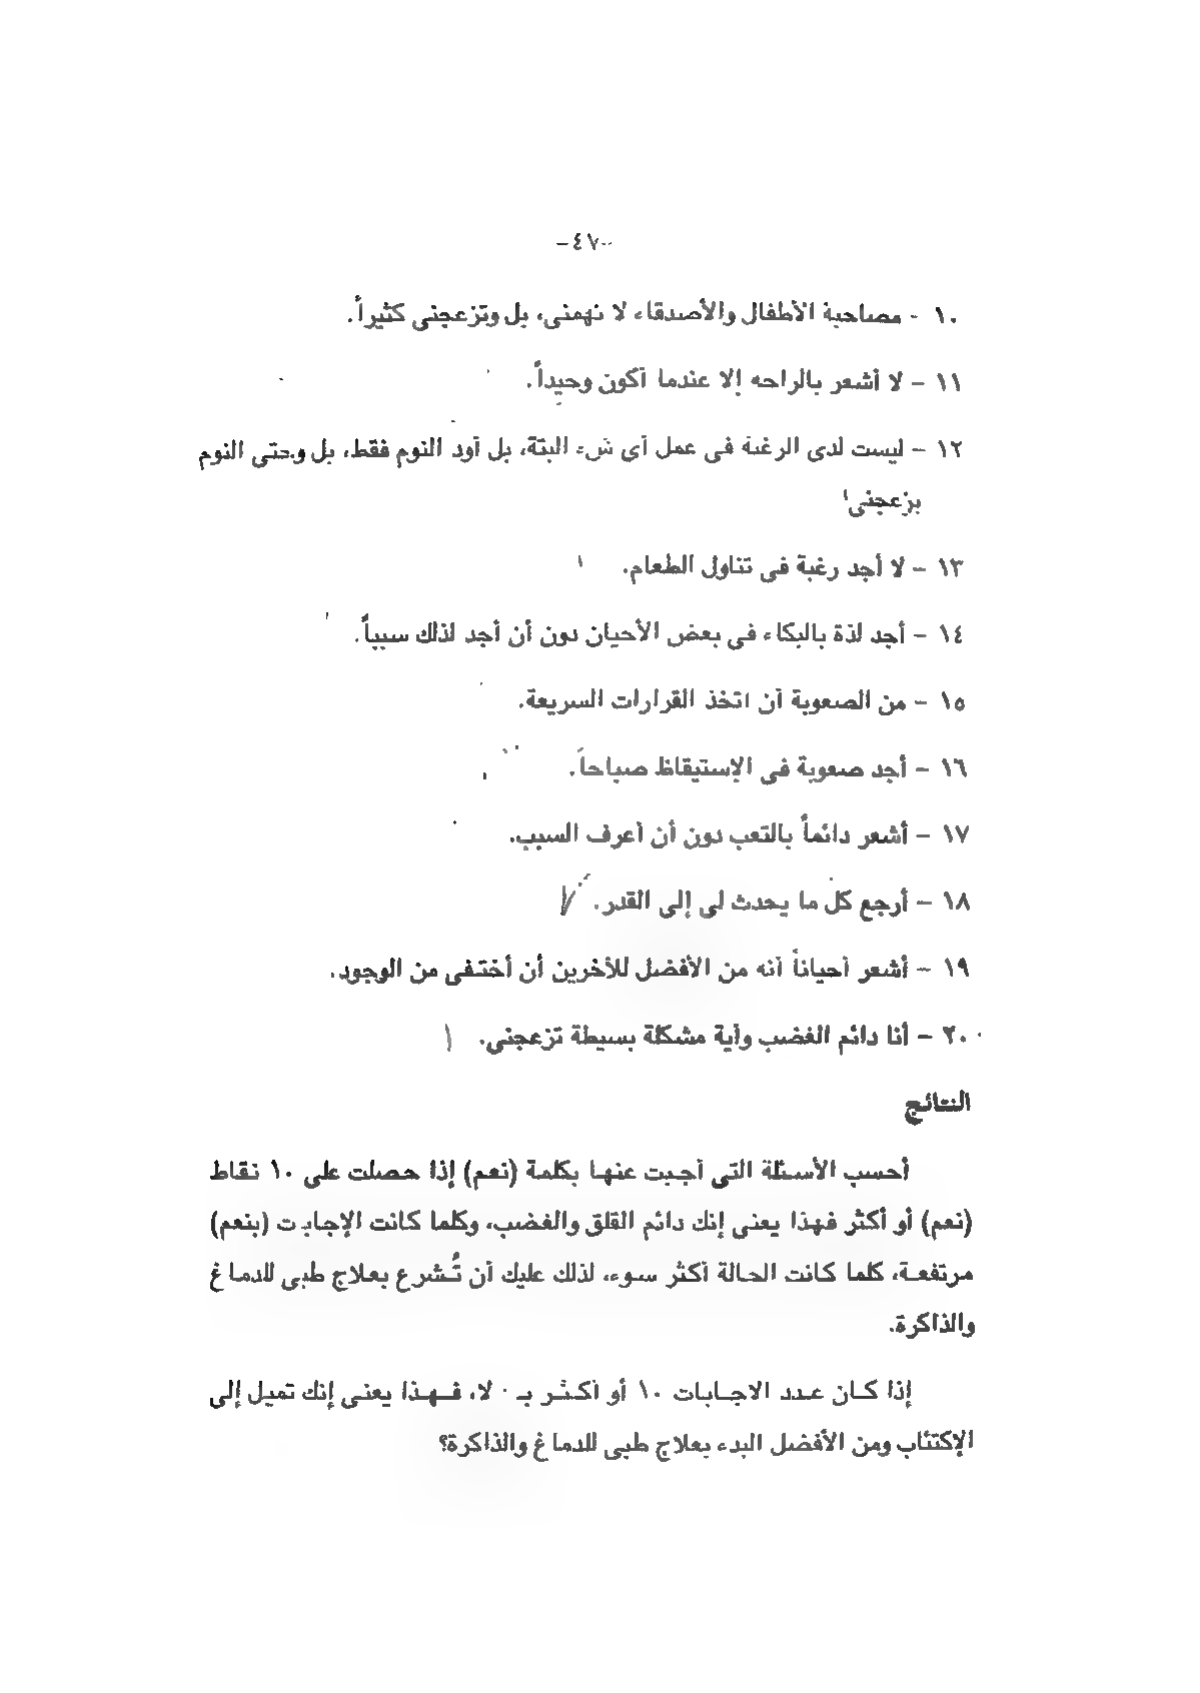 -٤٧-
١٠ - مصاحبة الأطفال والأصدقاء لا تهمنى، بل وتزعجنى كثيراً.
١١ - لا أشعر بالراحه إلا عندما أكون وحيداً.
١٢ - ليست لدى الرغبة فى عمل أى شىء البتة، بل أود النوم فقط، بل وحتى النوم
يزعجنى
١٣ - لا أجد رغبة فى تناول الطعام.
١٤ - أجد لذة بالبكاء فى بعض الأحيان دون أن أجد لذلك سبباً.
١٥ - من الصعوبة أن اتخذ القرارات السريعة.
١٦ - أجد صعوبة فى الإستيقاظ صباحاً.
١٧ - أشعر دائماً بالتعب دون أن أعرف السبب.
١٨ - أرجع كل ما يحدث لى إلى القدر.
١٩ - أشعر أحياناً أنه من الأفضل للأخرين أن أختفى من الوجود.
٢٠ - أنا دائم الغضب وأية مشكلة بسيطة تزعجنى.
النتائج
أحسب الأسئلة التى أجبت عنها بكلمة (نعم) إذا حصلت على ١٠ نقاط
(نعم) أو أكثر فهذا يعنى إنك دائم القلق والغضب، وكلما كانت الإجابات (بنعم)
مرتفعة، كلما كانت الحالة أكثر سوء، لذلك عليك أن تُشرع بعلاج طبى للدماغ
والذاكرة.
إذا كان عدد الاجابات ١٠ أو أكثر بـ لا، فهذا يعنى إنك تميل إلى
الإكتئاب ومن الأفضل البدء بعلاج طبى للدماغ والذاكرة؟